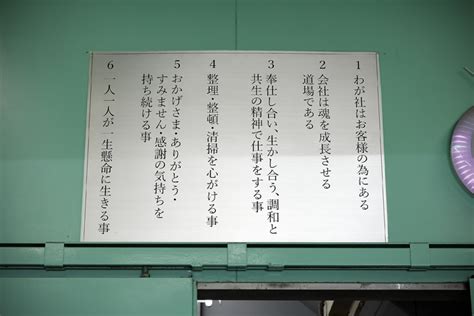 1 わが社はお客様の為にある
2 会社は魂を成長させる
道場である
3 奉仕し合い、生かし合う、調和と
共生の精神で仕事をする事
4 整理・整頓・清掃を心がける事
5 おかげさま・ありがとう・
すみません・感謝の気持ちを
持ち続ける事
6 一人一人が一生懸命に生きる事